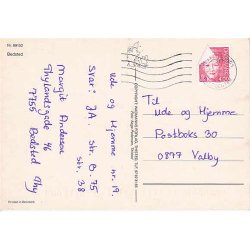 Nr. 89152
Bedsted
Ude og Hjemme nr. 19.
Svar: JA.
Str. B. 75
Str. 38
Margit Andersen
Thylandsgade 4
7755 Bedsted Thy
Til
Ude og Hjemme
Postboks 30
0897 Valby
Printed in Denmark